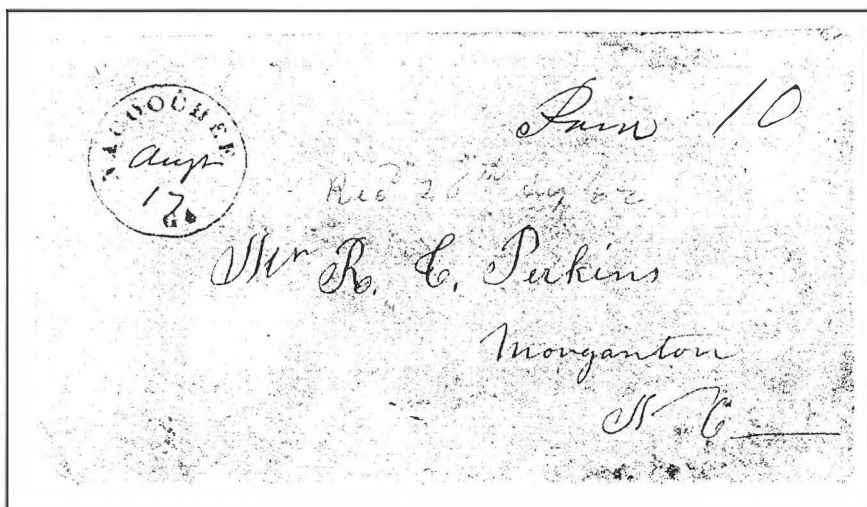 NACOOCHEE
Augt
17
Ga
Paid 10
Recd 20th Aug/62
Mr R. C. Perkins
Morganton
N C